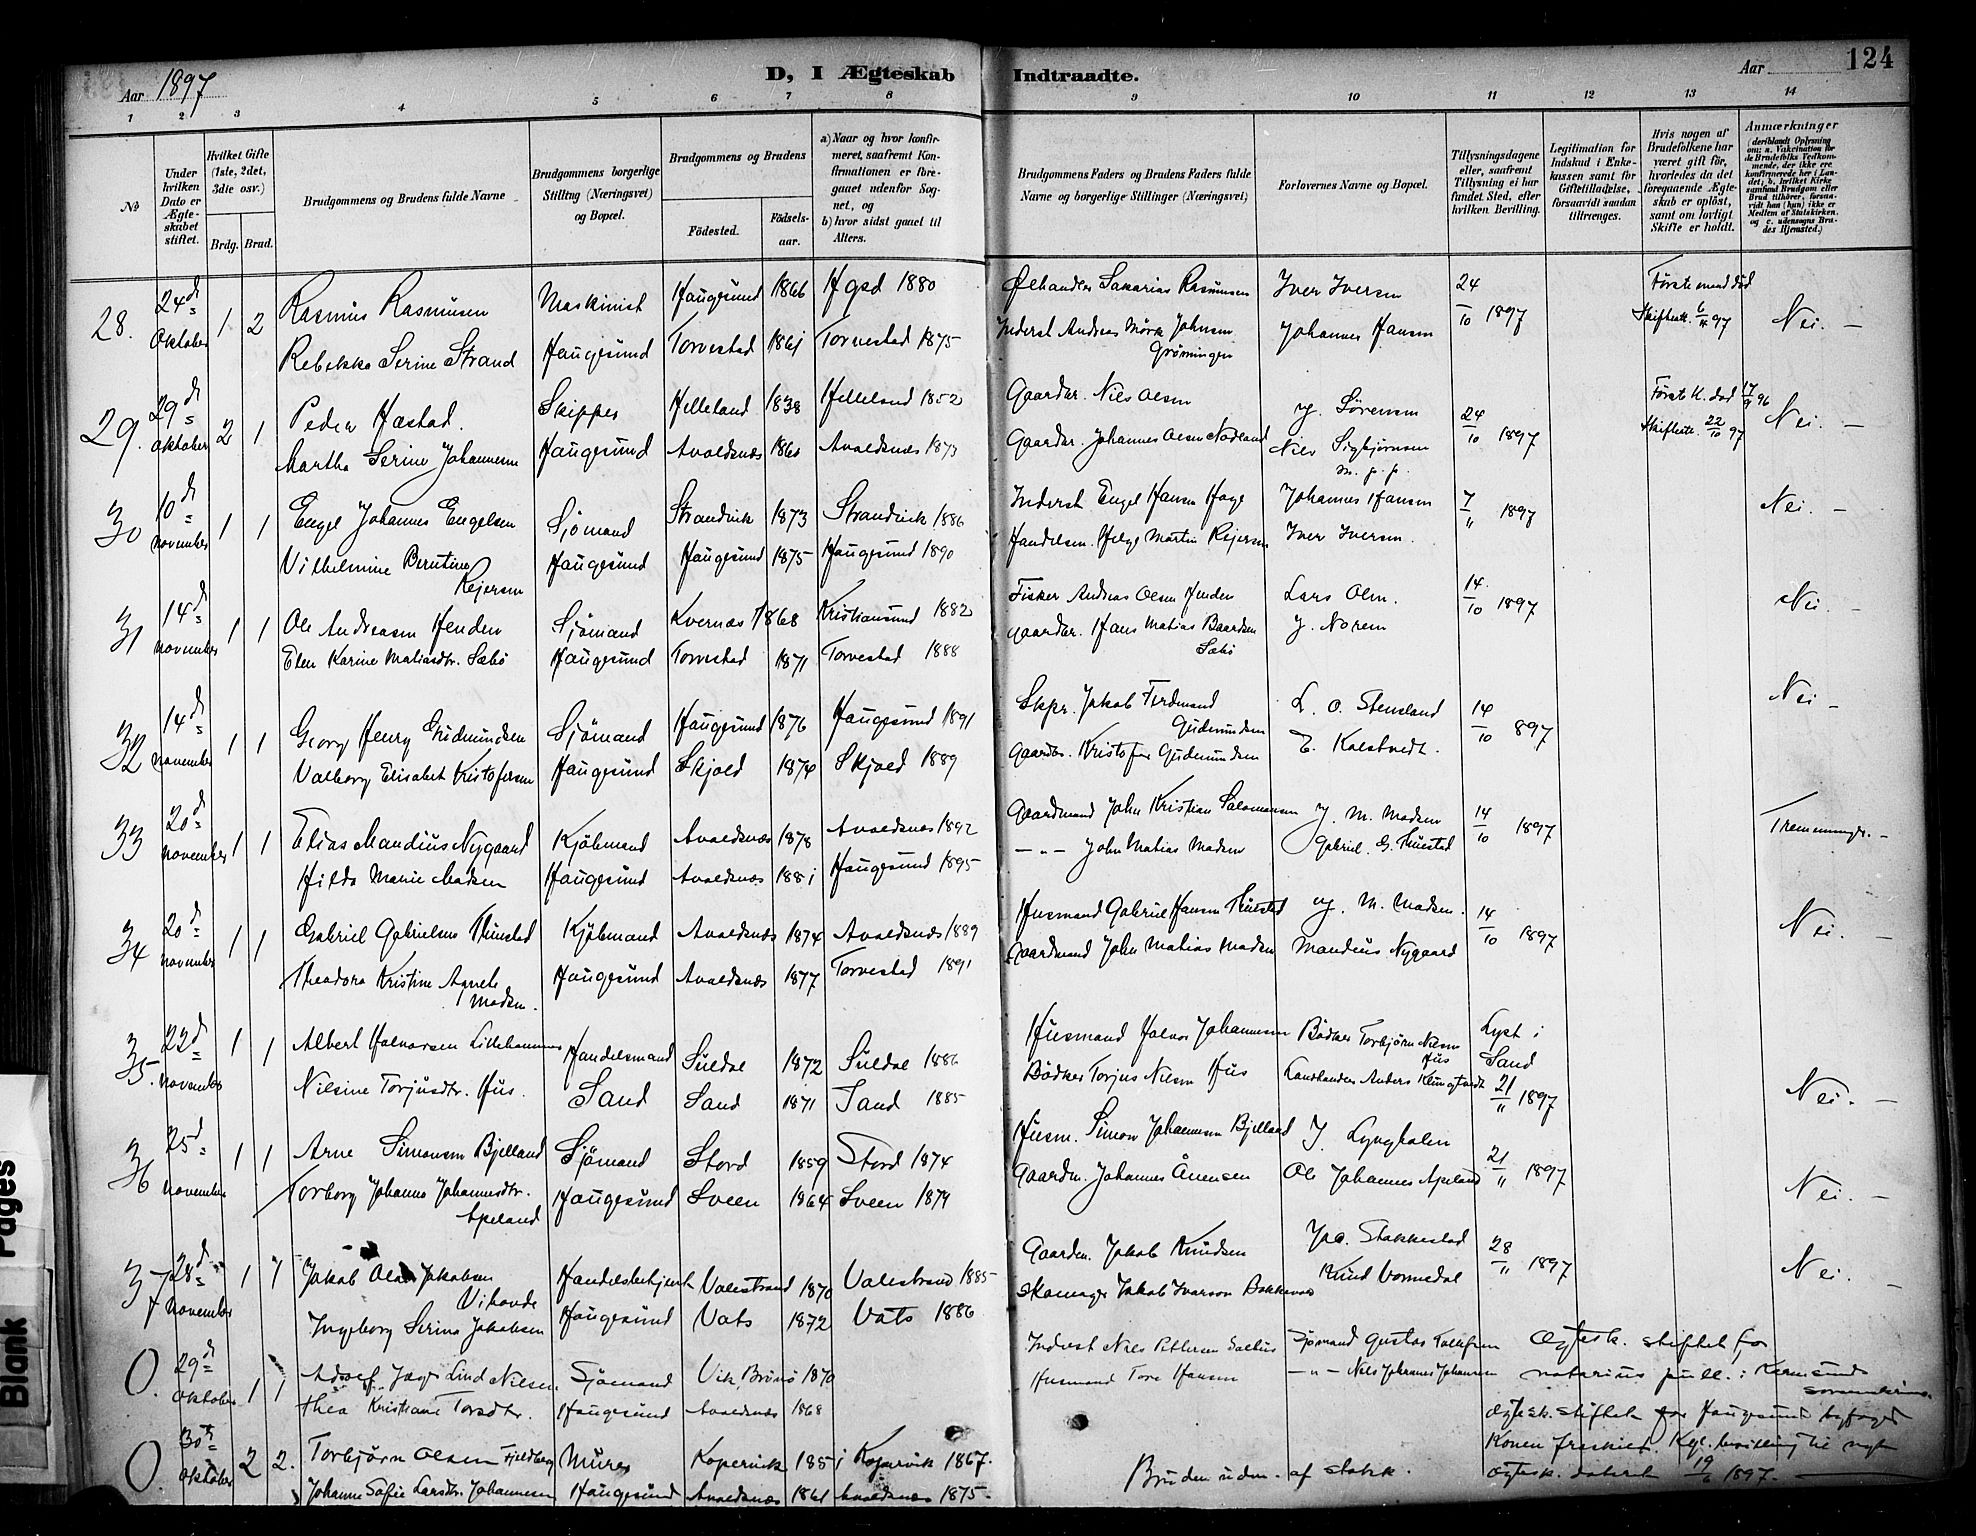 Aar 1897
D, I Ægteskab Indtraadte.
Aar
124
1 2 3 4 5 6 7 8 9 10 11 12 13 14
No
Under hvilken Dato er Ægteskabet stiftet.
Hvilket Gifte (1ste, 2det, 3die osv.)
Brdg. Brud.
Brudgommens og Brudens fulde Navne
Brudgommens borgerlige Stilling (Næringsvei) og Bopæl.
Brudgommens og Brudens
Fødested.
Fødselsaar.
a) Naar og hvor konfirmeret, saafremt Konfirmationen er foregaaet udenfor Sognet, og
b) hvor sidst gaaet til Alters.
Brudgommens Faders og Brudens Faders fulde Navne og borgerlige Stillinger (Næringsvei)
Forlovernes Navne og Bopæl.
Tillysningsdagene eller, saafremt Tillysning ei har fundet Sted, efter hvilken Bevilling.
Legitimation for Indskud i Enkekassen samt for Giftetilladelse, forsaavidt saadan tiltrænges.
Hvis nogen af Brudefolkene har været gift før, hvorledes da det foregaaende Ægteskab er opløst, samt om lovligt Skifte er holdt.
Anmærkninger
(deriblandt Oplysning om: a. Vakcination for de Brudefolks Vedkommende, der ikke ere konfirmerede her i Landet; b. hvilket Kirkesamfund Brudgom eller Brud tilhører, forsaavidt han (hun) ikke er Medlem af Statskirken, og c. udensogns Brudes Hjemsted.)
28. 24d Oktober 1 2
Rasmus Rasmusen Maskinist Haugesund 1866 Hgsd 1880 Ølhandler Sakarias Rasmusen Iver Iversen 24/10 1897 Første mand død
Rebekka Serine Strand Haugesund Torvestad 1861 Torvestad 1875 Inderst Andreas Mørk Johnsen Grønningen Johannes Hansen Skifteatt. 6/4 97 Nei. —
29. 29d Oktober 2 1
Peder Hæstad. Skipper Helleland 1838 Helleland 1852 Gaardbr. Niels Olsen Sørensen 24/10 1897 Første K. død 17/9 96 Nei. —
Martha Serine Johannesen Haugesund Avaldsnæs 1860 Avaldsnæs 1873 Gaardbr. Johannes Olsen Nodland Niels Sigbjørnsen m. p. p. Skifteatt. 22/10 97
30 10d November 1 1
Engel Johannes Engelsen Sjömand Strandvik 1873 Strandvik 1886 Inderst Engel Hansen Hage Johannes Hansen 7/11 1897 Nei. —
Vilhelmine Berntine Rejersen Haugesund Haugesund 1875 Haugesund 1890 Handelsm. Helge Martin Rejersen Iver Iversen.
31 14d November 1 1
Ole Andreasen Henden Sjömand Kvernæs 1868 Kristiansund 1882 Fisker Andreas Olsen Henden Lars Olsen. 14/10 1897 Nei. —
Elen Karine Matiasdtr. Sæbö Haugesund Torvestad 1871 Torvestad 1888 Gaardbr. Hans Matias Baardsen Sæbö J. Norem
32 14d November 1 1
Georg Henry Gudmundsen Sjömand Haugesund 1876 Haugesund 1891 Skpr. Jakob Ferdinand Gudmundsen L. O. Stensland 14/10 897 Nei —
Valborg Elisabet Kristofersen Haugesund Skjold 1874 Skjold 1889 Gaardbr. Kristofer Gudmundsen E. Kolstvedt.
33 20d November 1 1
Elias Mandius Nygaard Kjöbmand Avaldsnæs 1878 Avaldsnæs 1892 Gaardmand John Kristian Salomonsen J. M. Madsen 14/10 1897 Tremenninger. —
Hilda Marie Madsen Haugesund Avaldsnæs 1881 Haugesund 1895 — " — John Matias Madsen Gabriel G. Thuestad
34 20d November 1 1
Gabriel Gabrielsen Thuestad Kjöbmand Avaldsnæs 1874 Avaldsnæs 1889 Husmand Gabriel Hansen Thuestad J. M. Madsen. 14/10 1897 Nei. —
Theodora Kristine Agnete Madsen. Haugesund Avaldsnæs 1877 Torvestad 1891 Gaardmand John Matias Madsen Mandius Nygaard
35. 22d November 1 1
Albert Halvorsen Lillehammer Handelsmand Suldal 1872 Suldal 1886 Husmand Halvor Johannesen Bödker Torbjørn Nilsen Hus Lyst i Sand
Nilsine Torjusdtr. Hus. Sand Sand 1871 Sand 1885 Bödker Torjus Nilsen Hus Landhandler Anders Klungtvedt 21/11 1897 Nei. —
36 25d November 1 1
Arne Simonsen Bjelland Sjömand Stord 1859 Stord 1874 Husm. Simon Johannesen Bjelland J. Lyngholm 21/11 1897
Torborg Johanne Johannesdtr. Apeland Haugesund Sveen 1864 Sveen 1879 Gaardm. Johannes Ånensen Ole Johannes Apeland Nei. —
37 28d November 1 1
Jakob Olai Jakobsen Vihovde Handelsbetjent Valestrand 1870 Valestrand 1885 Gaardm. Jakob Knudsen Jac. Stakkestad 28/11 1897 Nei. —
Ingeborg Serina Jakobsen Haugesund Vats 1872 Vats 1886 Skomager Jakob Ivarson Bakkevold Knud Vormedal
0. 29d Oktober 1 1
Adolf Jæger Lind Nilsen Sjömand Vik, Brönö 1870 Inderst Nils Pettersen Sjömand Gustav Ægtesk. stiftet for
Thea Kristiane Torsdtr. Haugesund Avaldsnæs 1868 Husmand Tore Hansen — " — Nils Johannes Johansen notarius publ. i Karmsund sorenskriv.
0 30te Oktober 2 2.
Torbjörn Olsen Fjeldberg Murer Kopervik 1851 Kopervik 1867. Ægtesk. stiftet for Haugesund byfoged
Johanne Sofie Larsdtr. Johannesen Haugesund Avaldsnæs 1861 Avaldsnæs 1875. Bruden udm. af statsk. Konen fraskilt. Kgl. bevilling til nyt
ægtesk. dateret 19/6 1897. —
Blank Pages